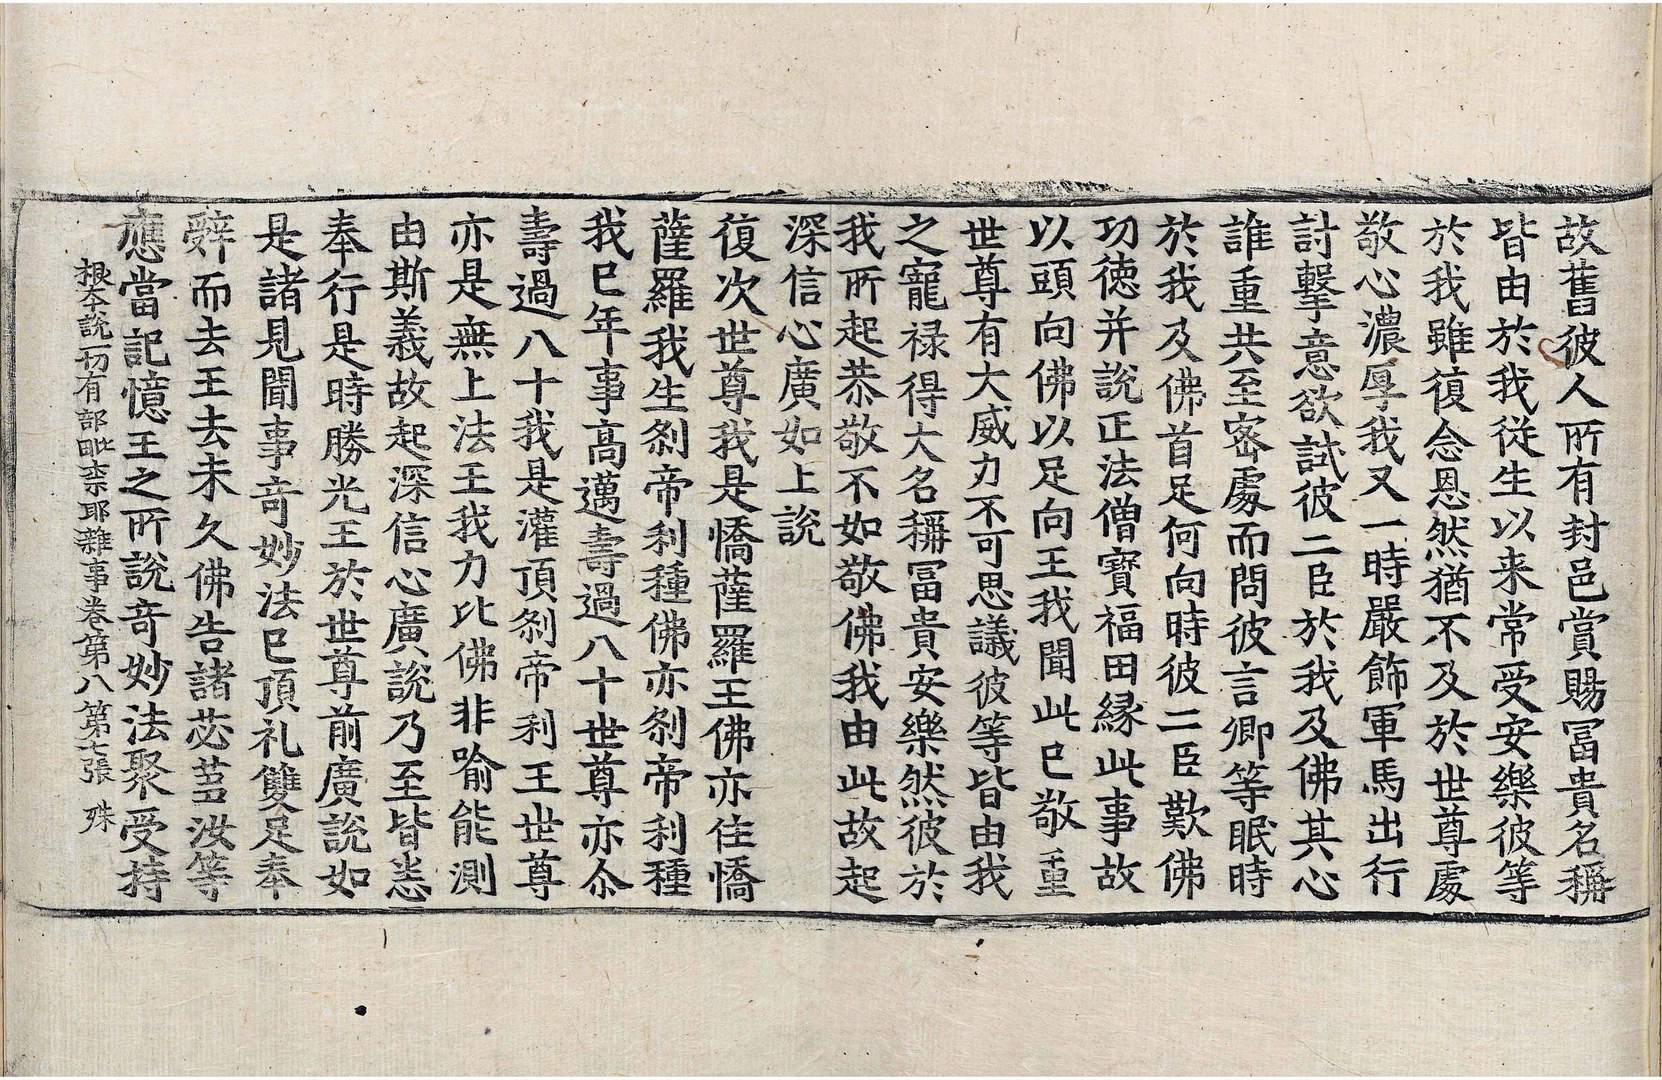 故舊彼人所有封邑賞賜冨貴名稱
皆由於我從生以来常受安樂彼等
於我雖復念恩然猶不及於世尊處
敬心濃厚我又一時嚴飾軍馬出行
討擊意欲試彼二臣於我及佛其心
誰重共至宻處而問彼言卿等眠時
於我及佛首足何向時彼二臣歎佛
功徳并說正法僧寶福田縁此事故
以頭向佛以足向王我聞此已敬重
世尊有大威力不可思議彼等皆由我
之寵禄得大名稱冨貴安樂然彼於
我所起恭敬不如敬佛我由此故起
深信心廣如上說
復次世尊我是憍薩羅王佛亦住憍
薩羅我生剎帝利種佛亦剎帝利種
我已年事高邁壽過八十世尊亦尒
壽過八十我是灌頂剎帝利王世尊
亦是無上法王我力比佛非喻能測
由斯義故起深信心廣說乃至皆悉
奉行是時勝光王於世尊前廣說如
是諸見聞事竒妙法已頂礼雙足奉
辤而去王去未久佛告諸苾蒭汝等
應當記憶王之所說竒妙法聚受持
根本說一切有部毗柰耶雜事卷第八 第七張 殊